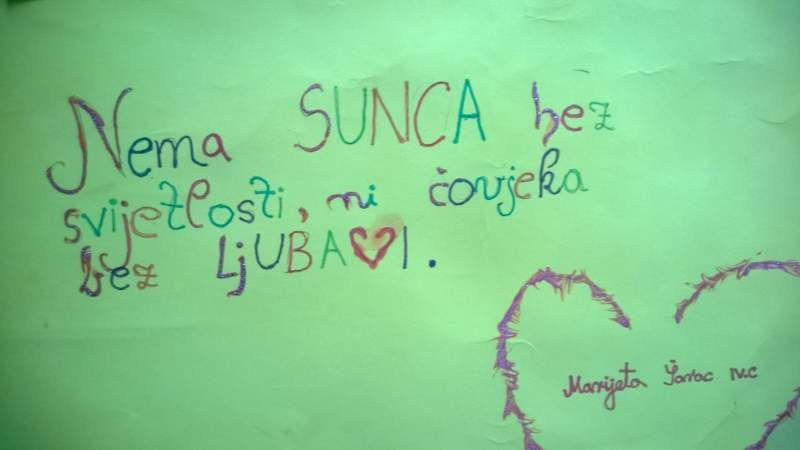 Nema SUNCA bez
svijetlosti, ni čovjeka
bez LjUBA❤I.
Marijeta Šarac IV.c